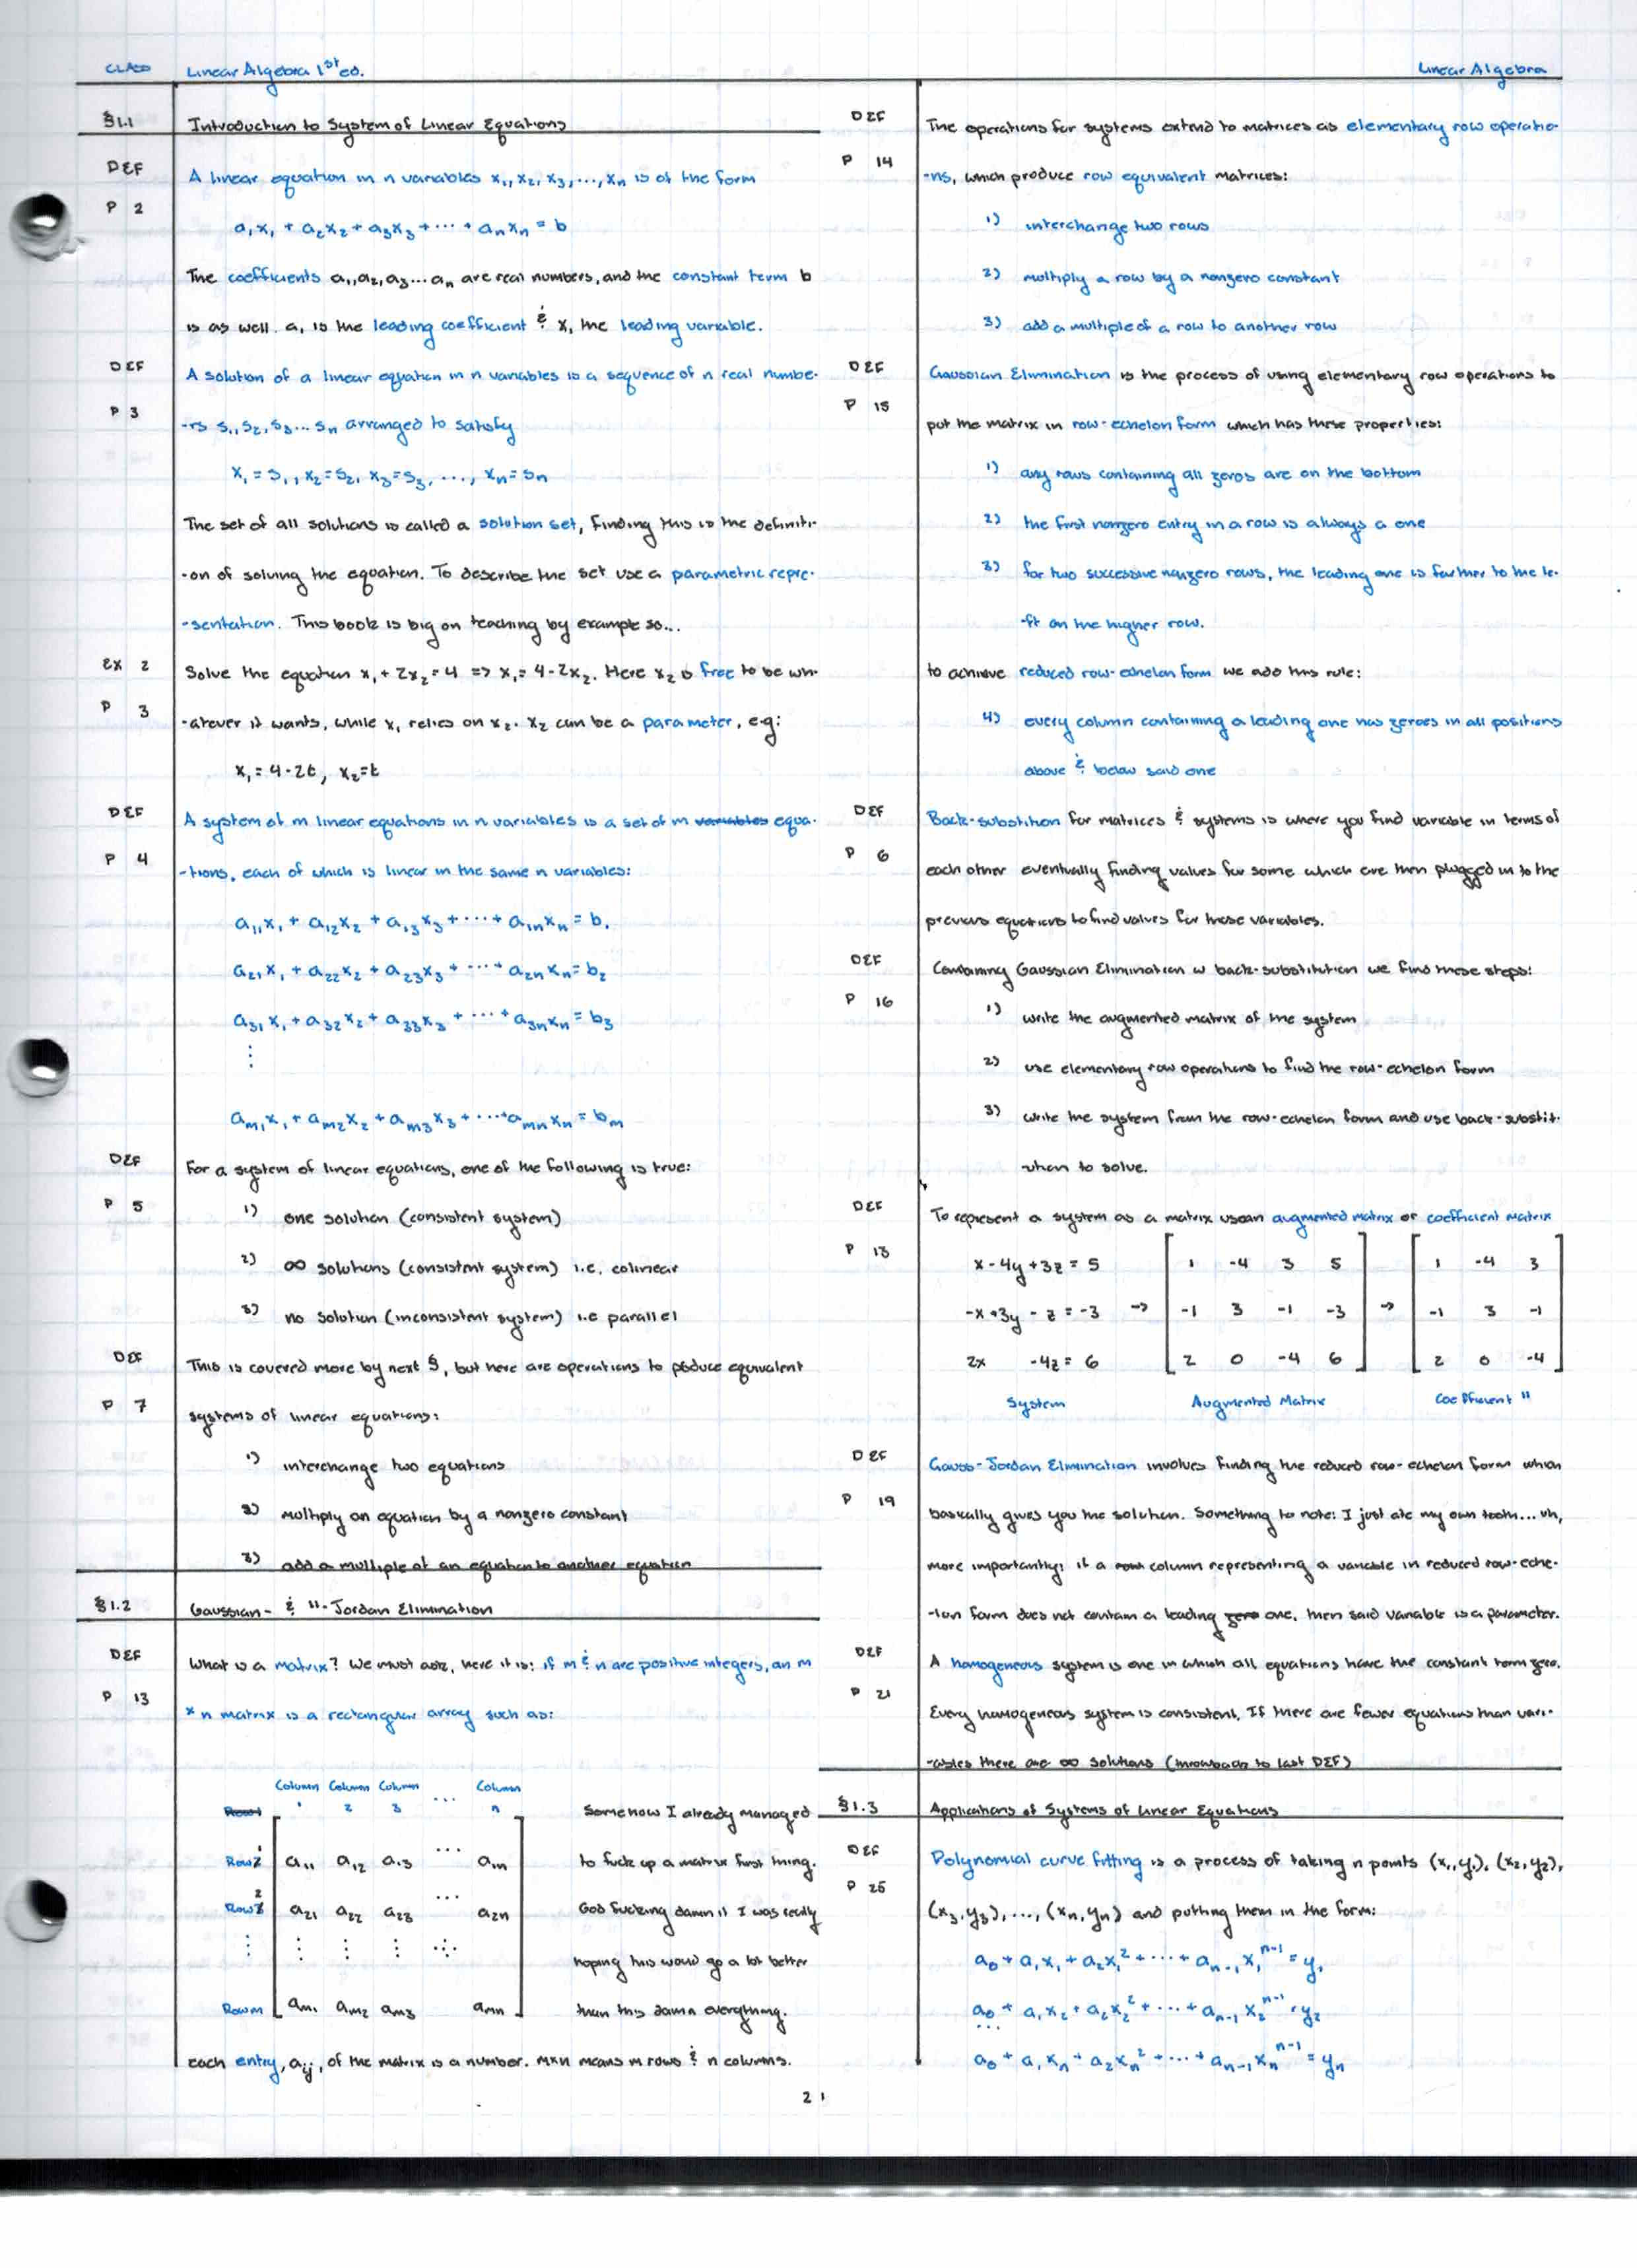 CLASS Linear Algebra 1st ed.
§1.1 Introduction to System of Linear Equations
DEF A linear equation in n variables x₁, x₂, x₃, ..., xₙ is of the form
P 2
a₁x₁ + a₂x₂ + a₃x₃ + ··· + aₙxₙ = b
The coefficients a₁, a₂, a₃... aₙ are real numbers, and the constant term b
is as well. a₁ is the leading coefficient & x₁ the leading variable.
DEF A solution of a linear equation in n variables is a sequence of n real numbe-
P 3 -rs s₁, s₂, s₃... sₙ arranged to satisfy
x₁ = s₁, x₂ = s₂, x₃ = s₃, ..., xₙ = sₙ
The set of all solutions is called a solution set, finding this is the definiti-
-on of solving the equation. To describe the set use a parametric repre-
-sentation. This book is big on teaching by example so...
EX 2 Solve the equation x₁ + 2x₂ = 4 => x₁ = 4 - 2x₂. Here x₂ is free to be wh-
P 3 -atever it wants, while x₁ relies on x₂. x₂ can be a parameter, e.g:
x₁ = 4 - 2t, x₂ = t
DEF A system of m linear equations in n variables is a set of m variables equa-
P 4 -tions, each of which is linear in the same n variables:
a₁₁x₁ + a₁₂x₂ + a₁₃x₃ + ··· + a₁ₙxₙ = b₁
a₂₁x₁ + a₂₂x₂ + a₂₃x₃ + ··· + a₂ₙxₙ = b₂
a₃₁x₁ + a₃₂x₂ + a₃₃x₃ + ··· + a₃ₙxₙ = b₃
⋮
aₘ₁x₁ + aₘ₂x₂ + aₘ₃x₃ + ··· + aₘₙxₙ = bₘ
DEF For a system of linear equations, one of the following is true:
P 5 1) one solution (consistent system)
2) ∞ solutions (consistent system) i.e. colinear
3) no solution (inconsistent system) i.e parallel
DEF This is covered more by next §, but here are operations to poduce equivalent
P 7 systems of linear equations:
1) interchange two equations
2) multiply an equation by a nonzero constant
3) add a multiple of an equation to another equation
§1.2 Gaussian- & "-Jordan Elimination
DEF What is a matrix? We must ask, here it is: if m & n are positive integers, an m
P 13 × n matrix is a rectangular array such as:
Column Column Column ··· Column
Row 1 1 2 3 n
Row 1 a₁₁ a₁₂ a₁₃ ··· a₁ₙ
Row 2 a₂₁ a₂₂ a₂₃ ··· a₂ₙ
⋮ ⋮ ⋮ ⋮ ⋱
Row m aₘ₁ aₘ₂ aₘ₃ aₘₙ
Somehow I already managed
to fuck up a matrix first thing.
God fucking damn it I was really
hoping this would go a lot better
than this damn everything.
each entry, aᵢⱼ, of the matrix is a number. m×n means m rows & n columns.
Linear Algebra
DEF The operations for systems extend to matrices as elementary row operatio-
P 14 -ns, which produce row equivalent matrices:
1) interchange two rows
2) multiply a row by a nonzero constant
3) add a multiple of a row to another row
DEF Gaussian Elimination is the process of using elementary row operations to
P 15 put the matrix in row-echelon form which has these properties:
1) any rows containing all zeros are on the bottom
2) the first nonzero entry in a row is always a one
3) for two successive nonzero rows, the leading one is farther to the le-
-ft on the higher row.
to achieve reduced row-echelon form we add this rule:
4) every column containing a leading one has zeroes in all positions
above & below said one
DEF Back-substition for matrices & systems is where you find variable in terms of
P 6 each other eventually finding values for some which are then plugged in to the
previous equations to find values for those variables.
DEF Combining Gaussian Elimination w back-substitution we find these steps:
P 16 1) write the augmented matrix of the system
2) use elementary row operations to find the row-echelon form
3) write the system from the row-echelon form and use back-substit-
-ution to solve.
DEF To represent a system as a matrix use an augmented matrix or coefficient matrix
P 13 x - 4y + 3z = 5 1 -4 3 5 1 -4 3
-x + 3y - z = -3 -> -1 3 -1 -3 -> -1 3 -1
2x -4z = 6 2 0 -4 6 2 0 -4
System Augmented Matrix Coefficient "
DEF Gauss-Jordan Elimination involves finding the reduced row-echelon form which
P 19 basically gives you the solution. Something to note: I just ate my own tooth... uh,
more importantly: if a row column representing a variable in reduced row-eche-
-lon form does not contain a leading zero one, then said variable is a parameter.
DEF A homogeneous system is one in which all equations have the constant term zero.
P 21 Every homogeneous system is consistent. If there are fewer equations than vari-
-ables there are ∞ solutions (throwback to last DEF)
§1.3 Applications of Systems of Linear Equations
DEF Polynomial curve fitting is a process of taking n points (x₁, y₁), (x₂, y₂),
P 25 (x₃, y₃), ..., (xₙ, yₙ) and putting them in the form:
a₀ + a₁x₁ + a₂x₁² + ··· + aₙ₋₁x₁ⁿ⁻¹ = y₁
a₀ + a₁x₂ + a₂x₂² + ··· + aₙ₋₁x₂ⁿ⁻¹ = y₂
...
a₀ + a₁xₙ + a₂xₙ² + ··· + aₙ₋₁xₙⁿ⁻¹ = yₙ
21